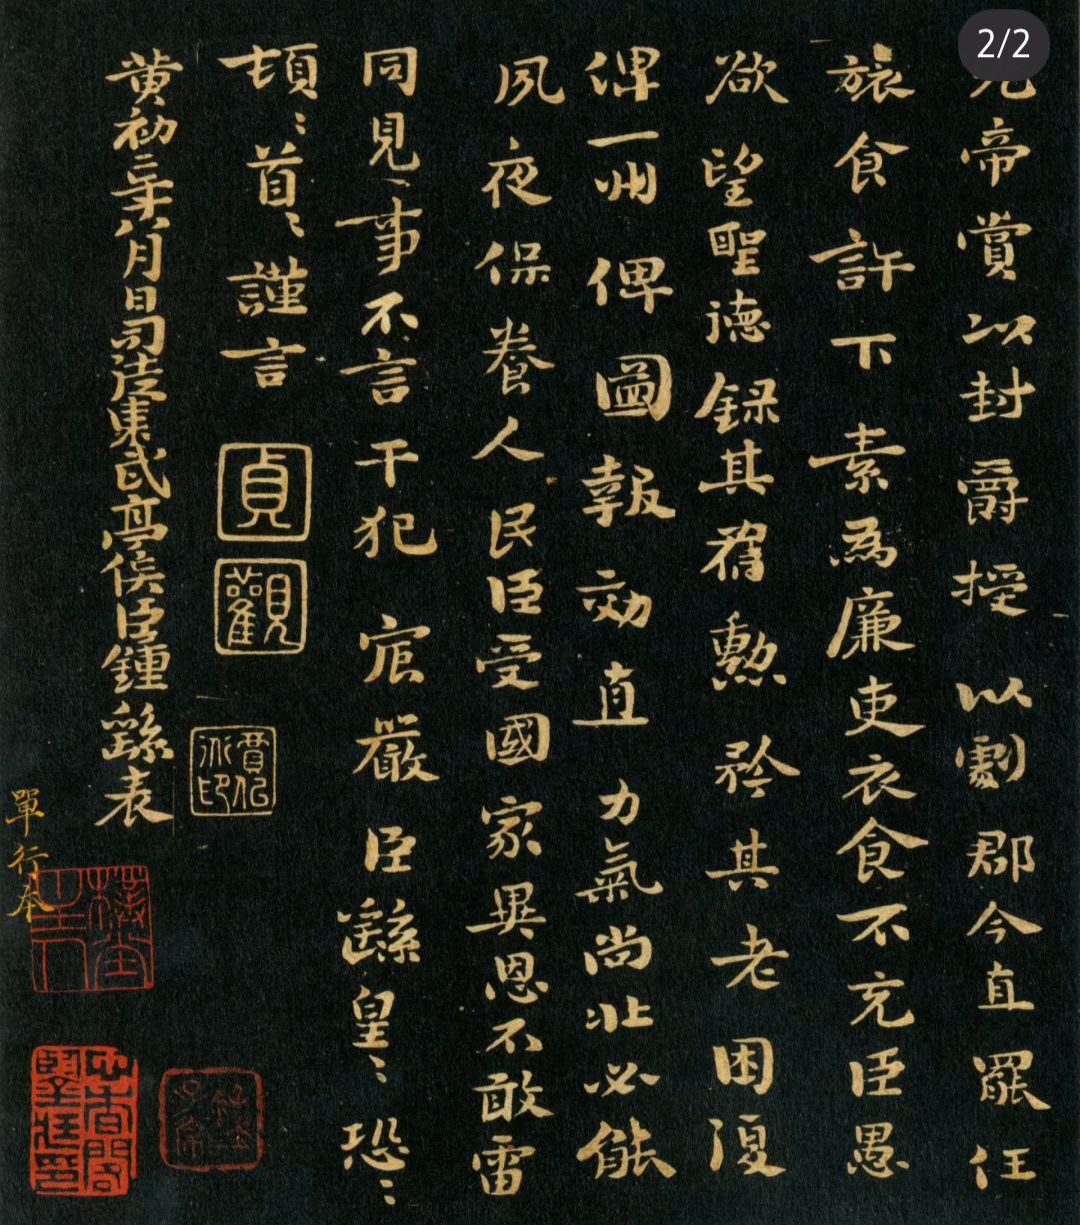 2/2
先帝賞以封爵授以劇郡今直罷任
旅食許下素為廉吏衣食不充臣愚
欲望聖德録其舊勲矜其老困復
俾一州俾圖報効直力氣尚壯必能
夙夜保養人民臣受國家異恩不敢雷
同見事不言干犯宸嚴臣繇皇〻恐〻
頓〻首〻謹言
貞
觀
黄初二年八月日司徒東武亭侯臣鍾繇表
單行本